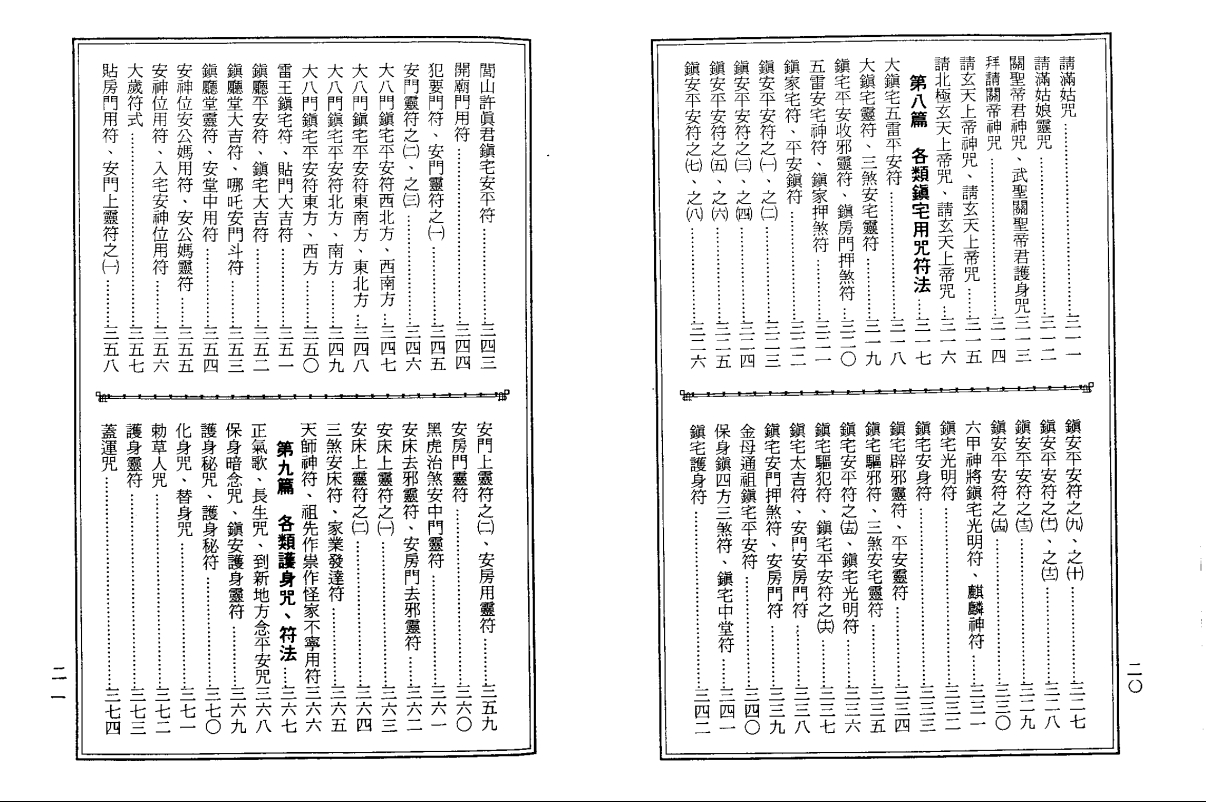 請滿姑咒⋯⋯三一一
請滿姑娘靈咒⋯⋯三一二
關聖帝君神咒、武聖關聖帝君護身咒三一三
拜請關帝神咒⋯⋯三一四
請玄天上帝神咒、請玄天上帝咒⋯⋯三一五
請北極玄天上帝咒、請玄天上帝咒⋯三一六
第八篇 各類鎮宅用咒符法⋯⋯三一七
大鎮宅五雷平安符⋯⋯三一八
大鎮宅靈符、三煞安宅靈符⋯⋯三一九
鎮宅平安收邪靈符、鎮房門押煞符⋯三二〇
五雷安宅神符、鎮家押煞符⋯⋯三二一
鎮家宅符、平安鎮符⋯⋯三二二
鎮安平安符之㈠、之㈡⋯⋯三二三
鎮安平安符之㈢、之㈣⋯⋯三二四
鎮安平安符之㈤、之㈥⋯⋯三二五
鎮安平安符之㈦、之㈧⋯⋯三二六
鎮安平安符之㈨、之㈩⋯⋯三二七
鎮安平安符之(十一)、之(十二)⋯⋯三二八
鎮安平安符之(十三)⋯⋯三二九
鎮安平安符之(十四)⋯⋯三三〇
六甲神將鎮宅光明符、麒麟神符⋯⋯三三一
鎮宅光明符⋯⋯三三二
鎮宅安身符⋯⋯三三三
鎮宅辟邪靈符、平安靈符⋯⋯三三四
鎮宅驅邪符、三煞安宅靈符⋯⋯三三五
鎮宅安平符之(十五)、鎮宅光明符⋯⋯三三六
鎮宅驅犯符、鎮宅平安符之(十六)⋯⋯三三七
鎮宅太吉符、安門安房門符⋯⋯三三八
鎮宅安門押煞符、安房門符⋯⋯三三九
金母通祖鎮宅平安符⋯⋯三四〇
保身鎮四方三煞符、鎮宅中堂符⋯⋯三四一
鎮宅護身符⋯⋯三四二
二〇
閭山許眞君鎮宅安平符⋯⋯三四三
開廟門用符⋯⋯三四四
犯要門符、安門靈符之㈠⋯⋯三四五
安門靈符之㈡、之㈢⋯⋯三四六
大八門鎮宅平安符西北方、西南方⋯三四七
大八門鎮宅平安符東南方、東北方⋯三四八
大八門鎮宅平安符北方、南方⋯⋯三四九
大八門鎮宅平安符東方、西方⋯⋯三五〇
雷王鎮宅符、貼門大吉符⋯⋯三五一
鎮廳平安符、鎮宅大吉符⋯⋯三五二
鎮廳堂大吉符、哪吒安門斗符⋯⋯三五三
鎮廳堂靈符、安堂中用符⋯⋯三五四
安神位安公媽用符、安公媽靈符⋯⋯三五五
安神位用符、入宅安神位用符⋯⋯三五六
大歲符式⋯⋯三五七
貼房門用符、安門上靈符之㈠⋯⋯三五八
安門上靈符之㈡、安房用靈符⋯⋯三五九
安房門靈符⋯⋯三六〇
黑虎治煞安中門靈符⋯⋯三六一
安床去邪靈符、安房門去邪靈符⋯⋯三六二
安床上靈符之㈠⋯⋯三六三
安床上靈符之㈡⋯⋯三六四
三煞安床符、家業發達符⋯⋯三六五
天師神符、祖先作祟作怪家不寧用符三六六
第九篇 各類護身咒、符法⋯⋯三六七
正氣歌、長生咒、到新地方念平安咒三六八
保身暗念咒、鎮安護身靈符⋯⋯三六九
護身秘咒、護身秘符⋯⋯三七〇
化身咒、替身咒⋯⋯三七一
勅草人咒⋯⋯三七二
護身靈符⋯⋯三七三
蓋運咒⋯⋯三七四
二一